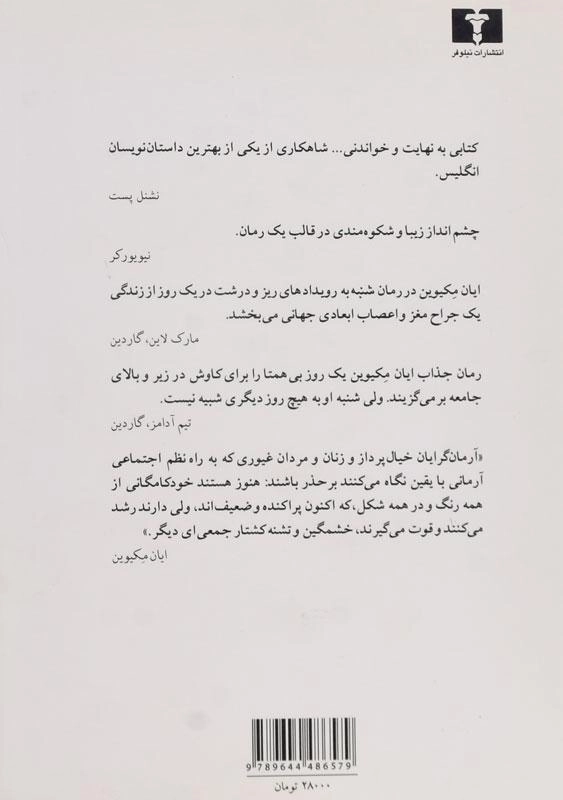 انتشارات نیلوفر
کتابی به نهایت و خواندنی... شاهکاری از یکی از بهترین داستان‌نویسان
انگلیس.
نشنل پست
چشم انداز زیبا و شکوه‌مندی در قالب یک رمان.
نیویورکر
ایان مِکیوین در رمان شنبه به رویدادهای ریز و درشت در یک روز از زندگی
یک جراح مغز و اعصاب ابعادی جهانی می‌بخشد.
مارک لاین، گاردین
رمان جذاب ایان مِکیوین یک روز بی‌همتا را برای کاوش در زیر و بالای
جامعه برمی‌گزیند. ولی شنبه او به هیچ روز دیگری شبیه نیست.
تیم آدامز، گاردین
«آرمان‌گرایان خیال‌پرداز و زنان و مردان غیوری که به راه نظم اجتماعی
آرمانی با یقین نگاه می‌کنند برحذر باشند: هنوز هستند خودکامگانی از
همه رنگ و در همه شکل، که اکنون پراکنده و ضعیف‌اند، ولی دارند رشد
می‌کنند و قوت می‌گیرند، خشمگین و تشنه کشتار جمعی‌ای دیگر.»
ایان مِکیوین
9 789644 486579
۲۸۰۰۰ تومان